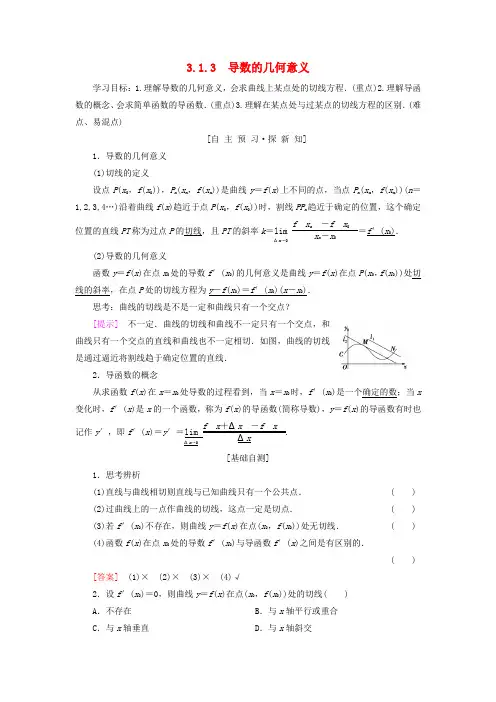 3.1.3 导数的几何意义
学习目标：1.理解导数的几何意义，会求曲线上某点处的切线方程．(重点)2.理解导函
数的概念、会求简单函数的导函数．(重点)3.理解在某点处与过某点的切线方程的区别．(难
点、易混点)
[自 主 预 习·探 新 知]
1．导数的几何意义
(1)切线的定义
设点 P(x₀，f(x₀))，Pₙ(xₙ，f(xₙ))是曲线 y＝f(x)上不同的点，当点 Pₙ(xₙ，f(xₙ))(n＝
1,2,3,4…)沿着曲线 f(x)趋近于点 P(x₀，f(x₀))时，割线 PPₙ趋近于确定的位置，这个确定
位置的直线 PT 称为过点 P 的切线，且 PT 的斜率 k＝lim Δx→0 f xₙ －f x₀ / xₙ－x₀ ＝f′(x₀)．
(2)导数的几何意义
函数 y＝f(x)在点 x₀处的导数 f′(x₀)的几何意义是曲线 y＝f(x)在点 P(x₀，f(x₀))处切
线的斜率，在点 P 处的切线方程为 y－f(x₀)＝f′(x₀)(x－x₀)．
思考：曲线的切线是不是一定和曲线只有一个交点？
[提示] 不一定．曲线的切线和曲线不一定只有一个交点，和
曲线只有一个交点的直线和曲线也不一定相切．如图，曲线的切线
是通过逼近将割线趋于确定位置的直线．
2．导函数的概念
从求函数 f(x)在 x＝x₀处导数的过程看到，当 x＝x₀时，f′(x₀)是一个确定的数；当 x
变化时，f′(x)是 x 的一个函数，称为 f(x)的导函数(简称导数)，y＝f(x)的导函数有时也
记作 y′，即 f′(x)＝y′＝lim Δx→0 f x＋Δx －f x / Δx．
[基础自测]
1．思考辨析
(1)直线与曲线相切则直线与已知曲线只有一个公共点． ( )
(2)过曲线上的一点作曲线的切线，这点一定是切点． ( )
(3)若 f′(x₀)不存在，则曲线 y＝f(x)在点(x₀，f(x₀))处无切线． ( )
(4)函数 f(x)在点 x₀处的导数 f′(x₀)与导函数 f′(x)之间是有区别的．
( )
[答案] (1)× (2)× (3)× (4)√
2．设 f′(x₀)＝0，则曲线 y＝f(x)在点(x₀，f(x₀))处的切线( )
A．不存在 B．与 x 轴平行或重合
C．与 x 轴垂直 D．与 x 轴斜交